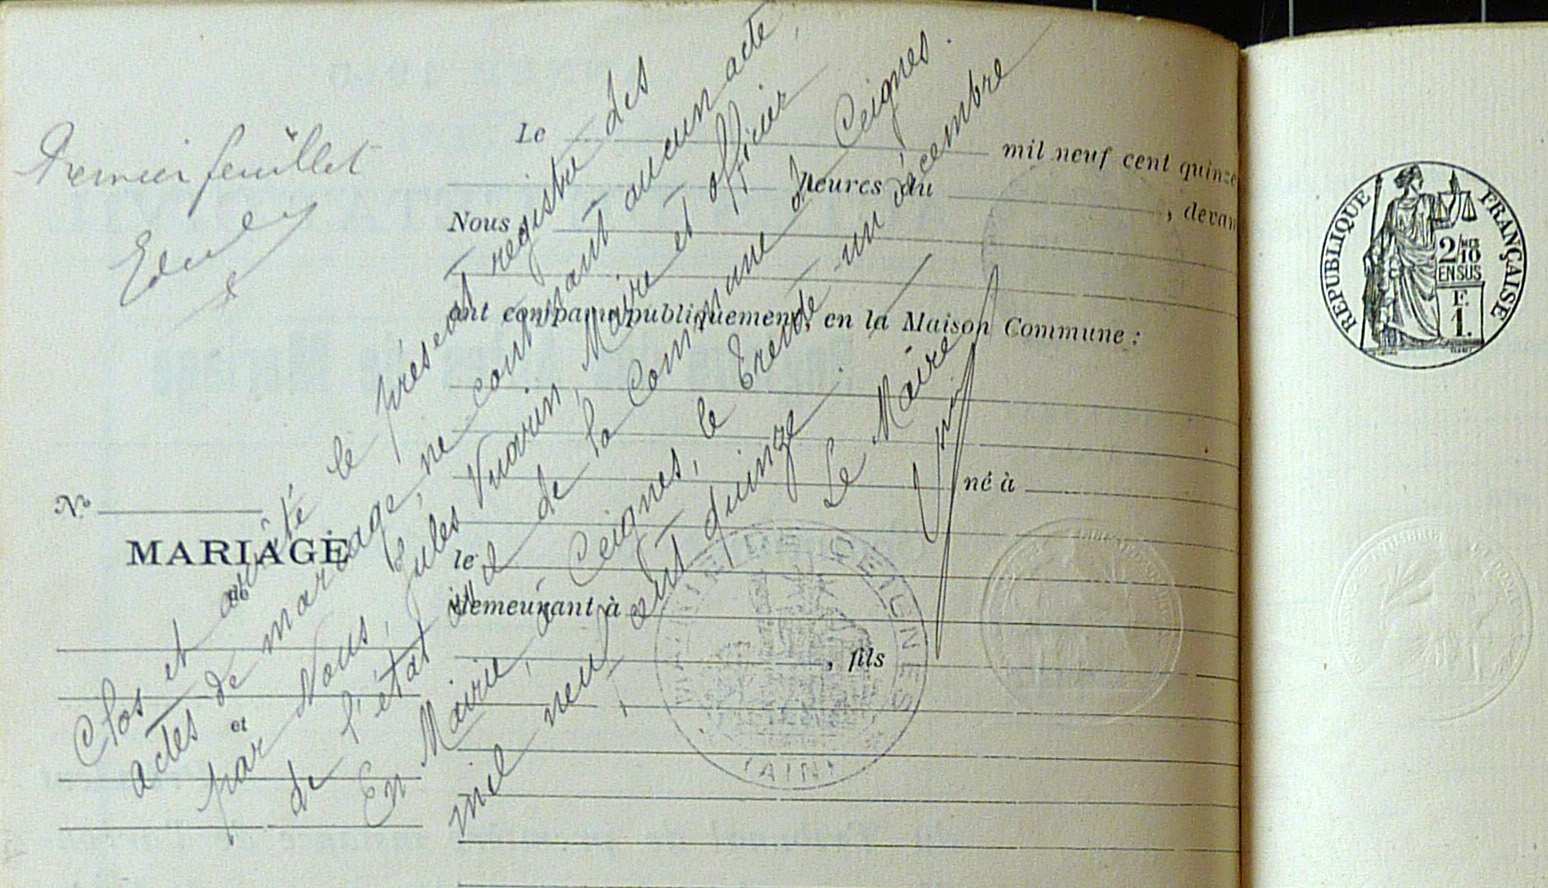 Premier feuillet
Le mil neuf cent quinze
heures du , devan
Nous
ont comparu publiquement, en la Maison Commune :
né à
le
demeurant à
, fils
No
MARIAGE
et
Clos et arrêté le présent registre des
actes de mariage, ne contenant aucun acte,
par Nous, Jules Vuarin, Maire et officier
de l'état civil de la Commune de Ceignes.
En Mairie, à Ceignes, le trente-un décembre
mil neuf cent quinze.
Le Maire
MAIRIE DE CEIGNES
(AIN)
RÉPUBLIQUE FRANÇAISE
2/10
EN SUS
F.
1.